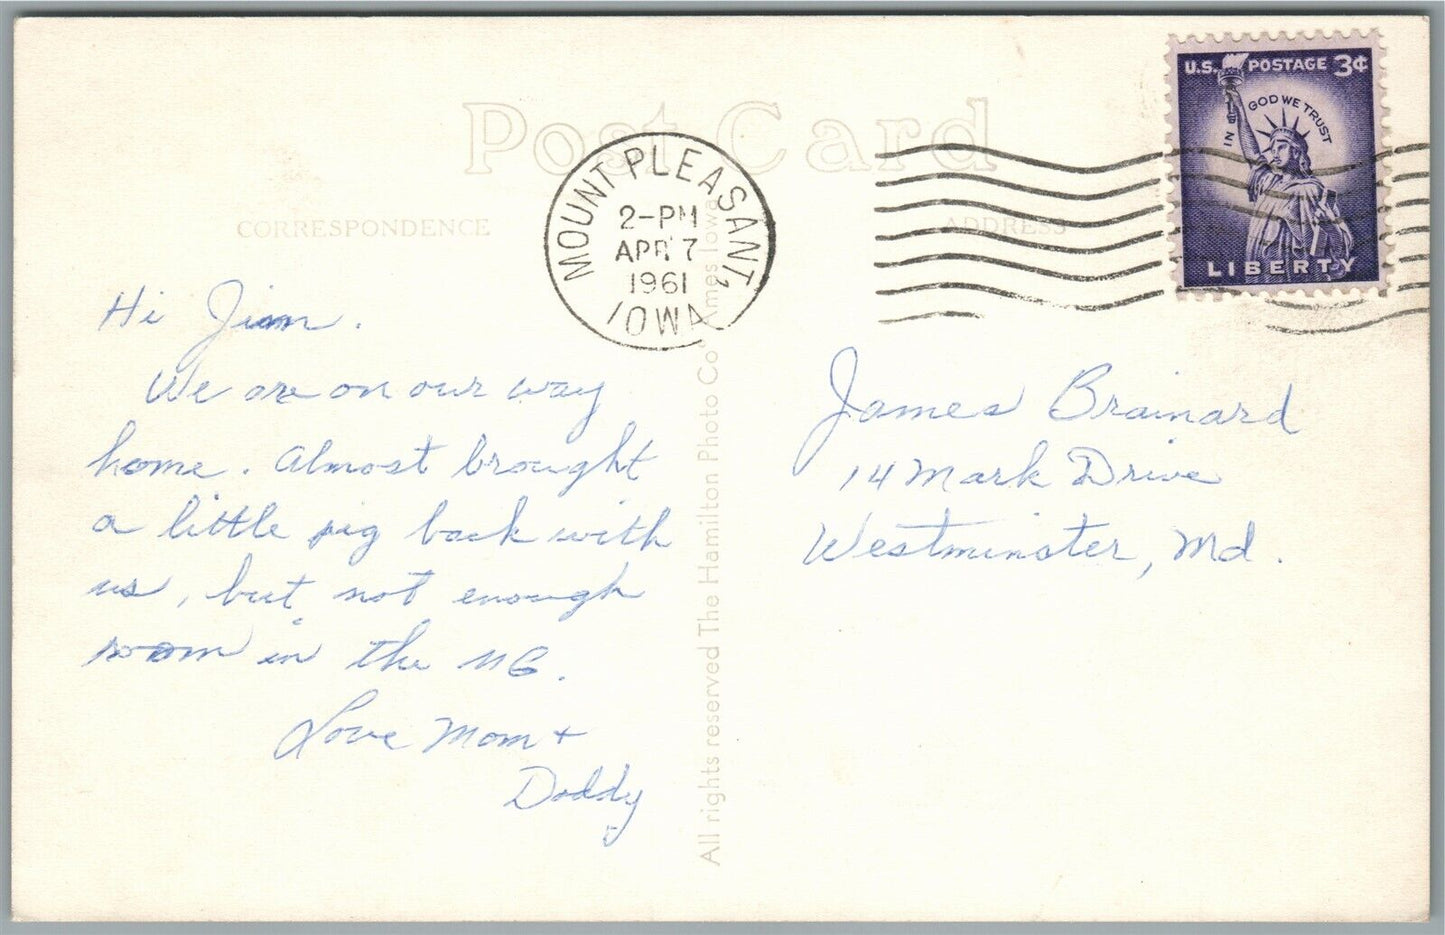 Post Card
CORRESPONDENCE
ADDRESS
MOUNT PLEASANT,
2-PM
APR 7
1961
IOWA
U.S. POSTAGE 3¢
IN GOD WE TRUST
LIBERTY
Hi Jim.
We are on our way
home. Almost brought
a little pig back with
us, but not enough
room in the MG.
Love Mom +
Daddy
All rights reserved The Hamilton Photo Co Ames Iowa
James Brainard
14 Mark Drive
Westminster, Md.